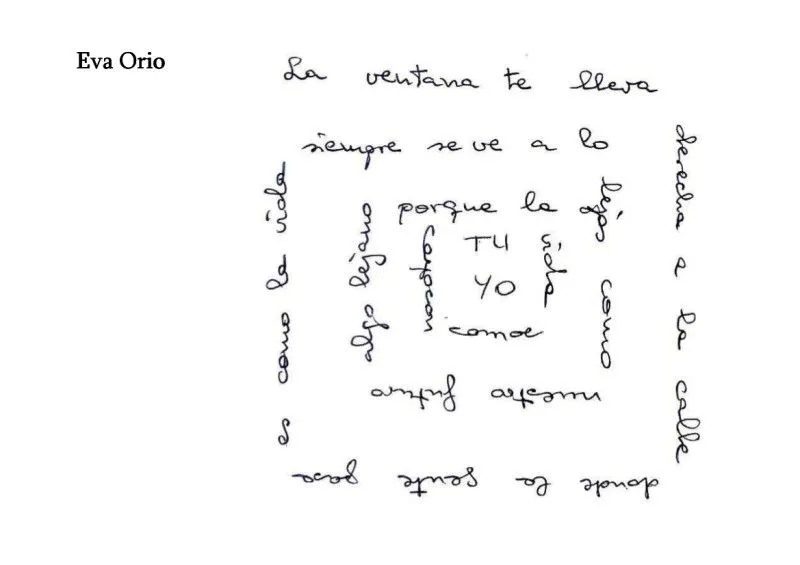 Eva Orio
La ventana te lleva
derecha a la calle
donde la gente pasa
como la vida
siempre se ve a lo
léjos como
nuestro futuro
algo léjano
porque la
vida
corazon
TU
YO